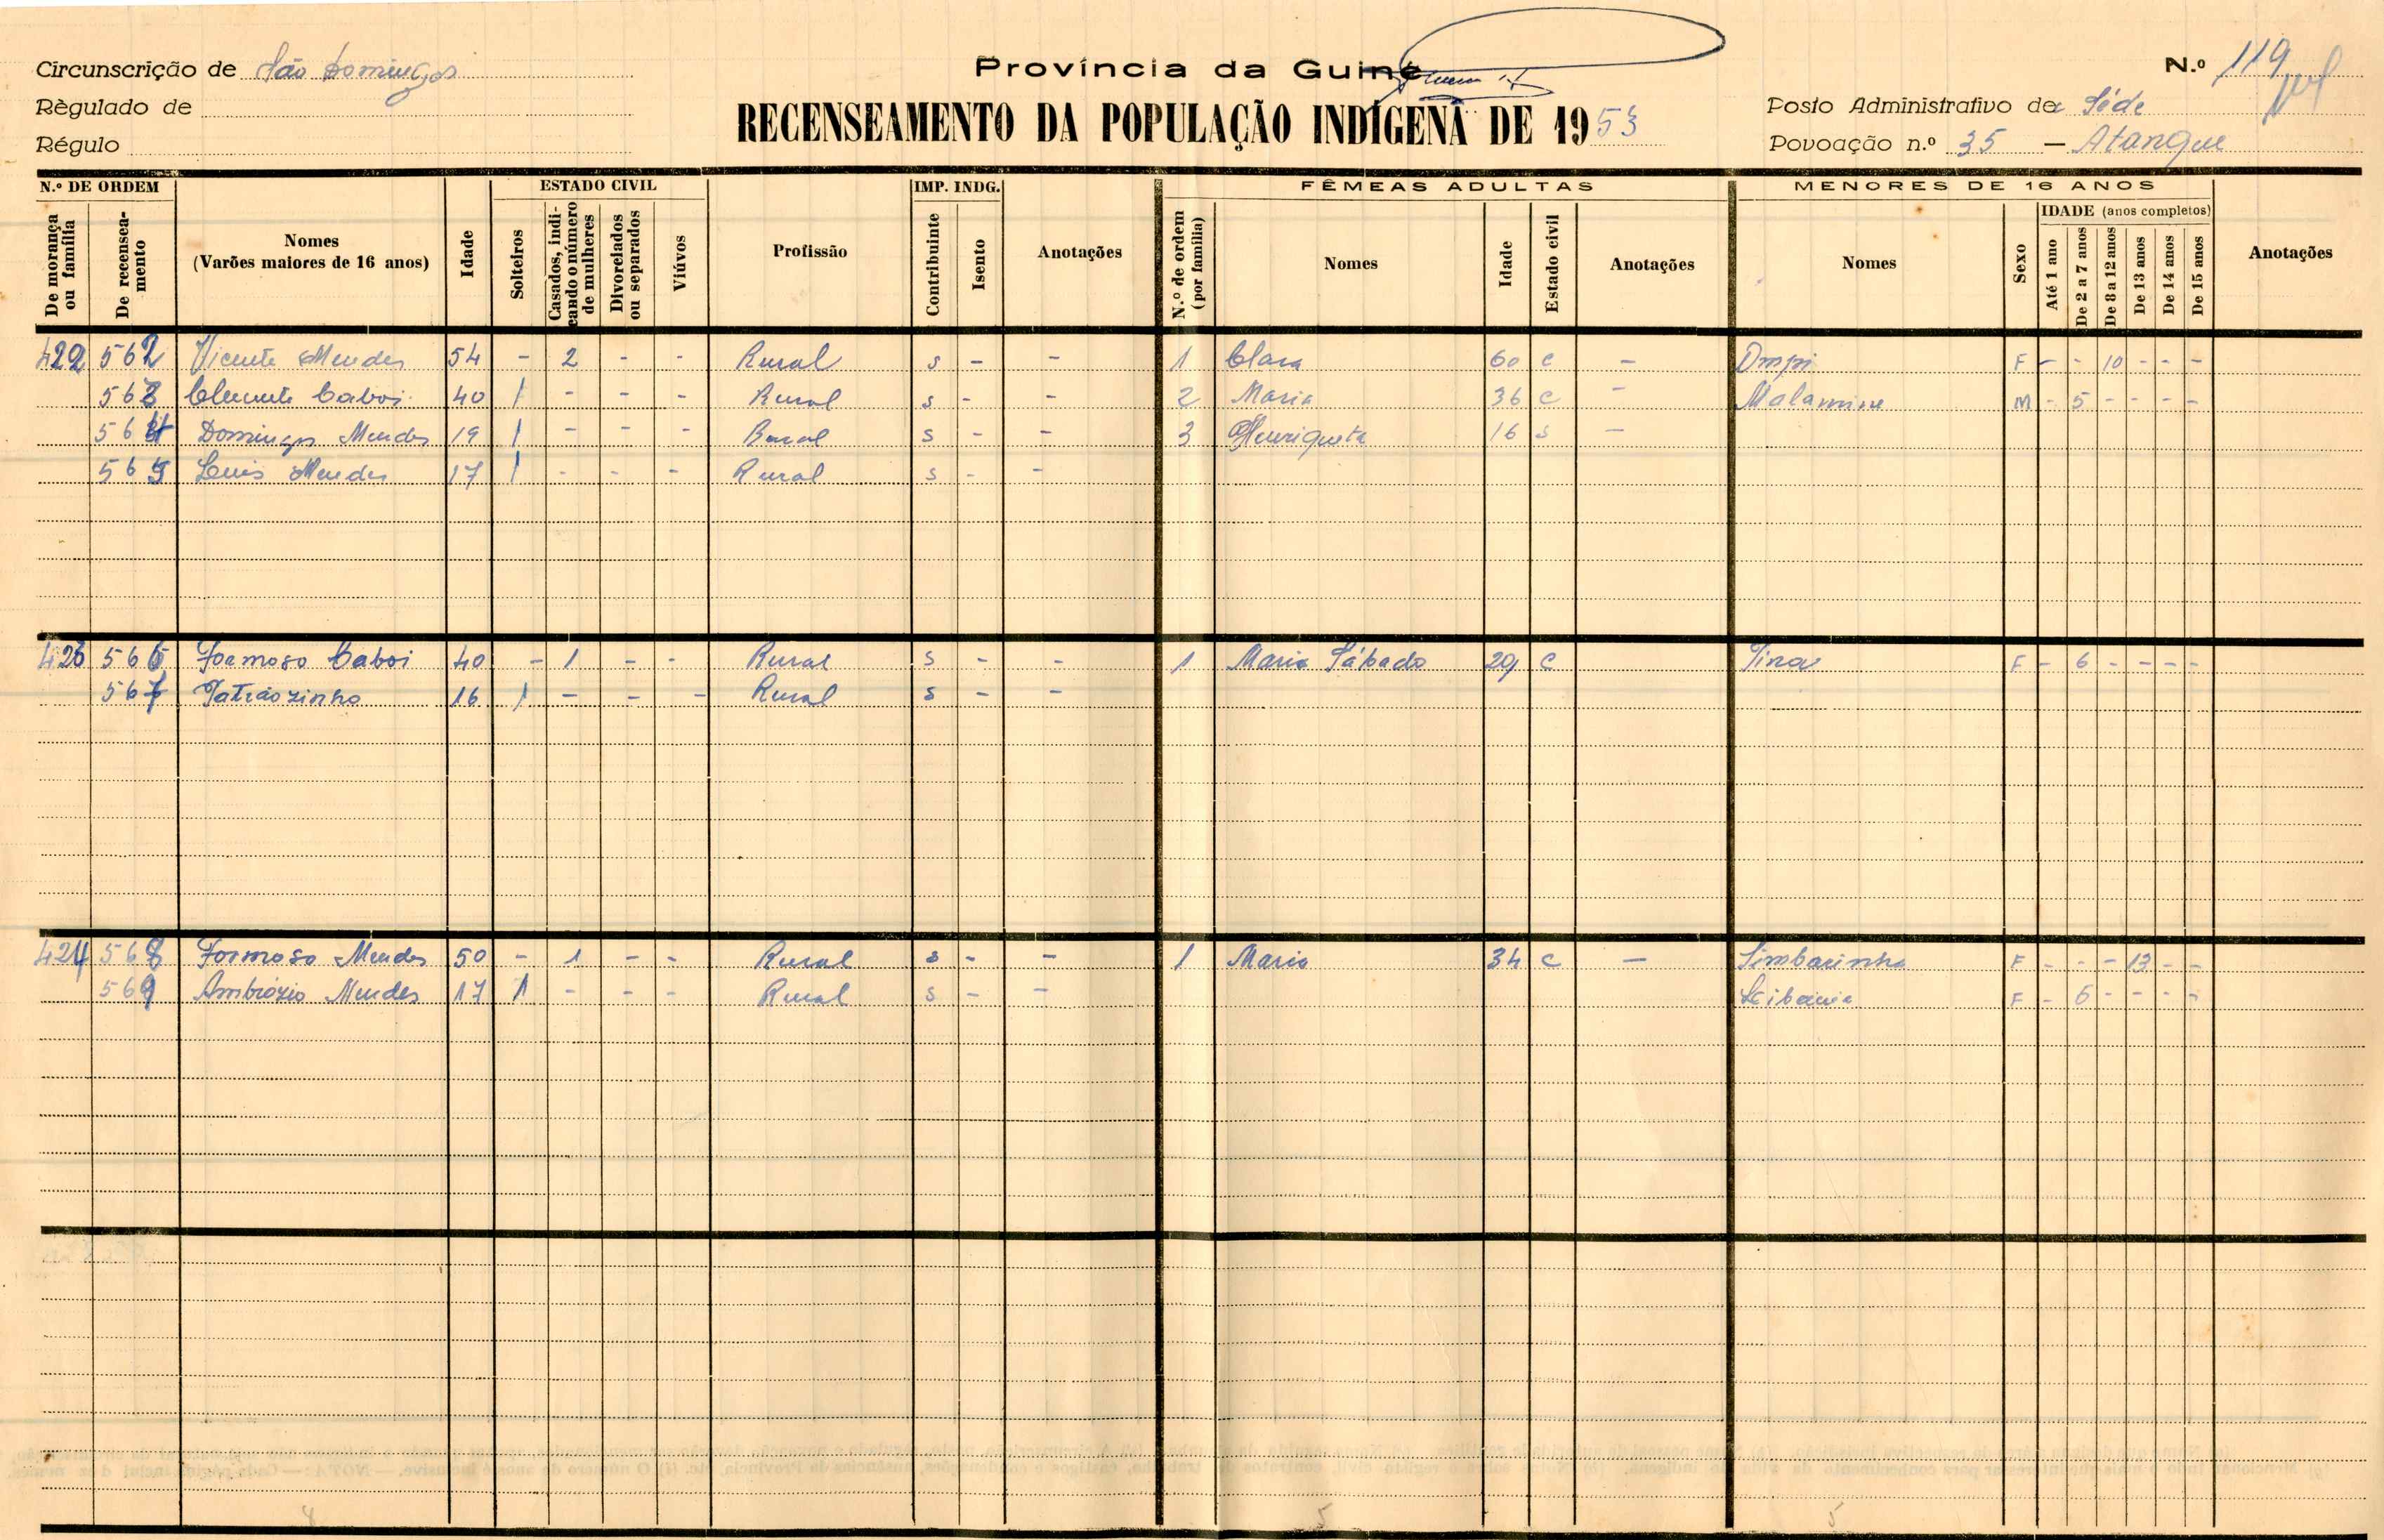 Circunscrição de São Domingos
Règulado de
Régulo
Província da Guiné
RECENSEAMENTO DA POPULAÇÃO INDÍGENA DE 1953
N.º 119
Posto Administrativo de Séde
Povoação n.º 35 — Atangue
N.º DE ORDEM
De morança ou família
De recenseamento
Nomes
(Varões maiores de 16 anos)
Idade
ESTADO CIVIL
Solteiros
Casados, indicando o número de mulheres
Divorciados ou separados
Viúvos
Profissão
IMP. INDG.
Contribuinte
Isento
Anotações
FÊMEAS ADULTAS
N.º de ordem (por família)
Nomes
Idade
Estado civil
Anotações
MENORES DE 16 ANOS
Nomes
Sexo
IDADE (anos completos)
Até 1 ano
De 2 a 7 anos
De 8 a 12 anos
De 13 anos
De 14 anos
De 15 anos
Anotações
422 562 Vicente Mendes 54 - 2 - - Rural s - - 1 Clara 60 c - Ompi F - - 10 - - -
563 Clemente Caboi 40 1 - - - Rural s - - 2 Maria 36 c - Malamine M - 5 - - - -
564 Domingos Mendes 19 1 - - - Rural s - - 3 Henriqueta 16 s -
565 Luis Mendes 17 1 - - - Rural s - -
423 566 Formoso Caboi 40 - 1 - - Rural s - - 1 Maria Sábado 29 c F - 6 - - - -
567 Patrãozinho 16 1 - - - Rural s - -
424 568 Formoso Mendes 50 - 1 - - Rural s - - 1 Maria 34 c - Simbarinho F - - - 13 - -
569 Ambrózio Mendes 17 1 - - - Rural s - - F - 6 - - - -